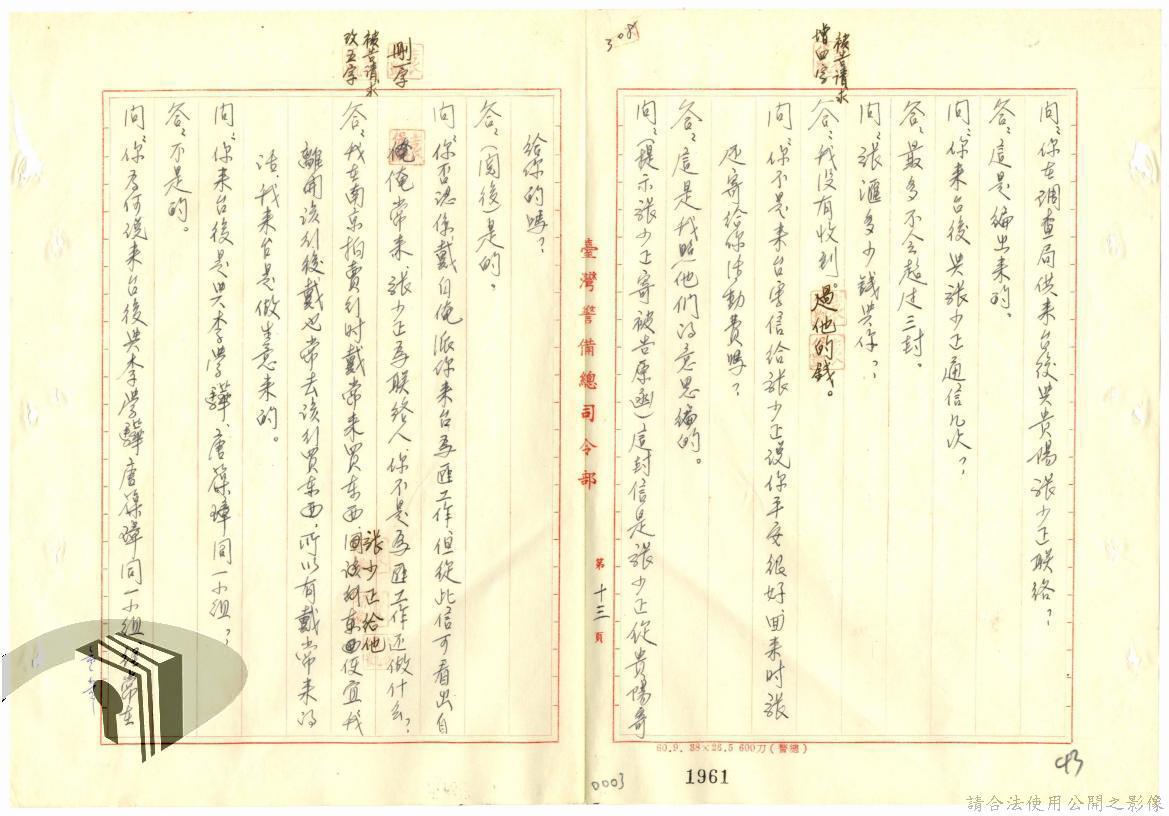 308
被告請求
增四字
問：你在調查局供来台後與貴陽張少正联络？
答：這是編出来的。
問：你来台後與張少正通信几次？
答：最多不会超过三封。
問：張滙多少錢與你？
答：我没有收到過他的錢。
問：你不是来台寄信給張少正说你平安很好回来时張
还寄给你活動費嗎？
答：這是我照他們的意思編的。
問：（提示張少正寄被告原函）這封信是張少正從貴陽寄
臺灣警備總司令部
第十三頁
刪一字
被告請求
改五字
給你的嗎？
答：（閱後）是的。
問：你否認係戴自俺派你来台為匪工作但從此信可看出自
俺常来張少正為联络人你不是為匪工作还做什么？
答：我在南京拍賣行时戴常来買东西張少正給他便宜我
離開该行後戴也常去该行買东西，所以有戴常来的
话，我来台是做生意来的。
問：你来台後是與李學驊、唐篠璋同一小組？
答：不是的。
問：你為何说来台後與李學驊唐篠璋同一小組 常在
60.9. 38×26.5 600刀（警總）
0003
1961
43
請合法使用公開之影像